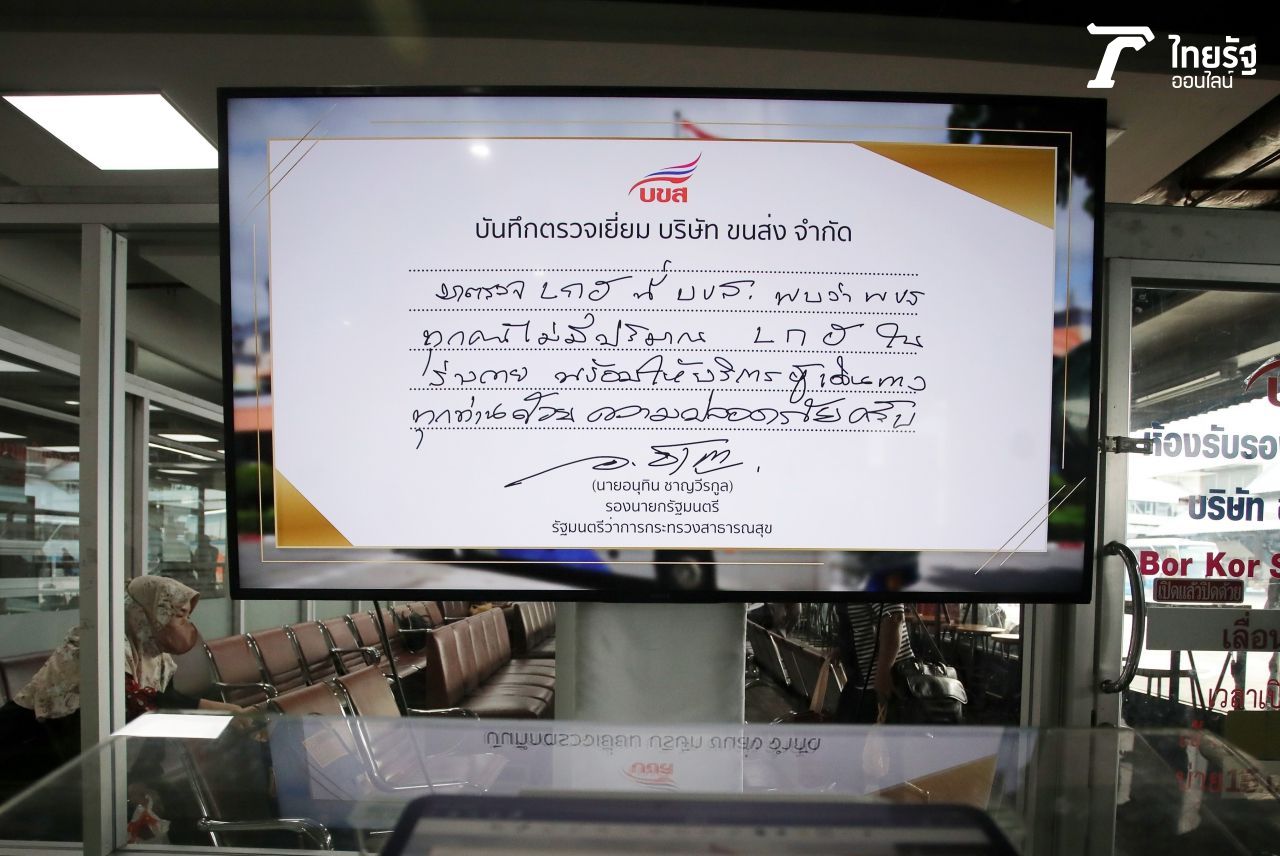 ไทยรัฐ
ออนไลน์
บขส
บันทึกตรวจเยี่ยม บริษัท ขนส่ง จำกัด
มาตรวจ แกฮ ที่ บขส. พบว่า พขร
ทุกคนไม่มีปริมาณ แกฮ ใน
ร่างกาย พร้อมให้บริการผู้เดินทาง
ทุกท่านด้วย ความปลอดภัยครับ
(นายอนุทิน ชาญวีรกูล)
รองนายกรัฐมนตรี
รัฐมนตรีว่าการกระทรวงสาธารณสุข
ห้องรับรอ
บริษัท
Bor Kor S
เปิดแล้วปิดด้วย
เลื่อ
เวลาเปิ
บ่าย